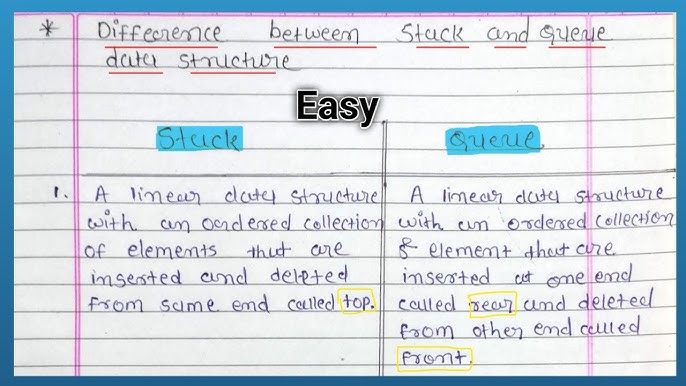 * Difference between Stack and Queue
data structure
Easy
Stack
Queue.
1. A linear data structure
with an oardered collection
of elements that are
inserted and deleted
from same end called top.
A linear data structure
with an ordered collection
of element that are
inserted at one end
called rear and deleted
from other end called
front.